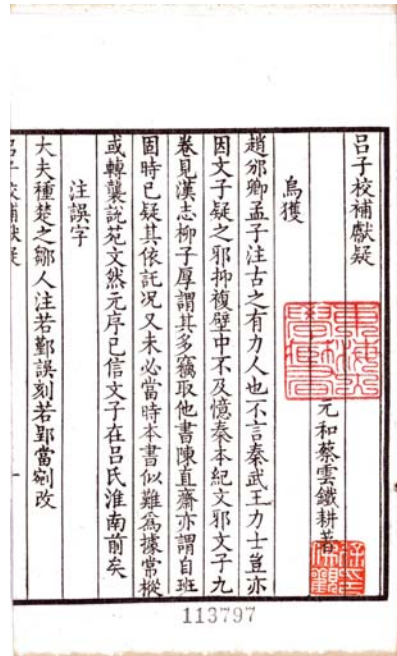 呂子校補獻疑
元和蔡雲鐵耕著
烏獲
趙邠卿孟子注古之有力人也不言秦武王力士豈亦
因文子疑之邪抑複壁中不及憶秦本紀文邪文子九
卷見漢志柳子厚謂其多竊取他書陳直齋亦謂自班
固時已疑其依託况又未必當時本書似難為據常樅
或轉襲說苑文然元序已信文子在呂氏淮南前矣
注誤字
大夫種楚之鄒人注若鄞誤刻若郢當剜改
呂子校補獻疑
一
113797